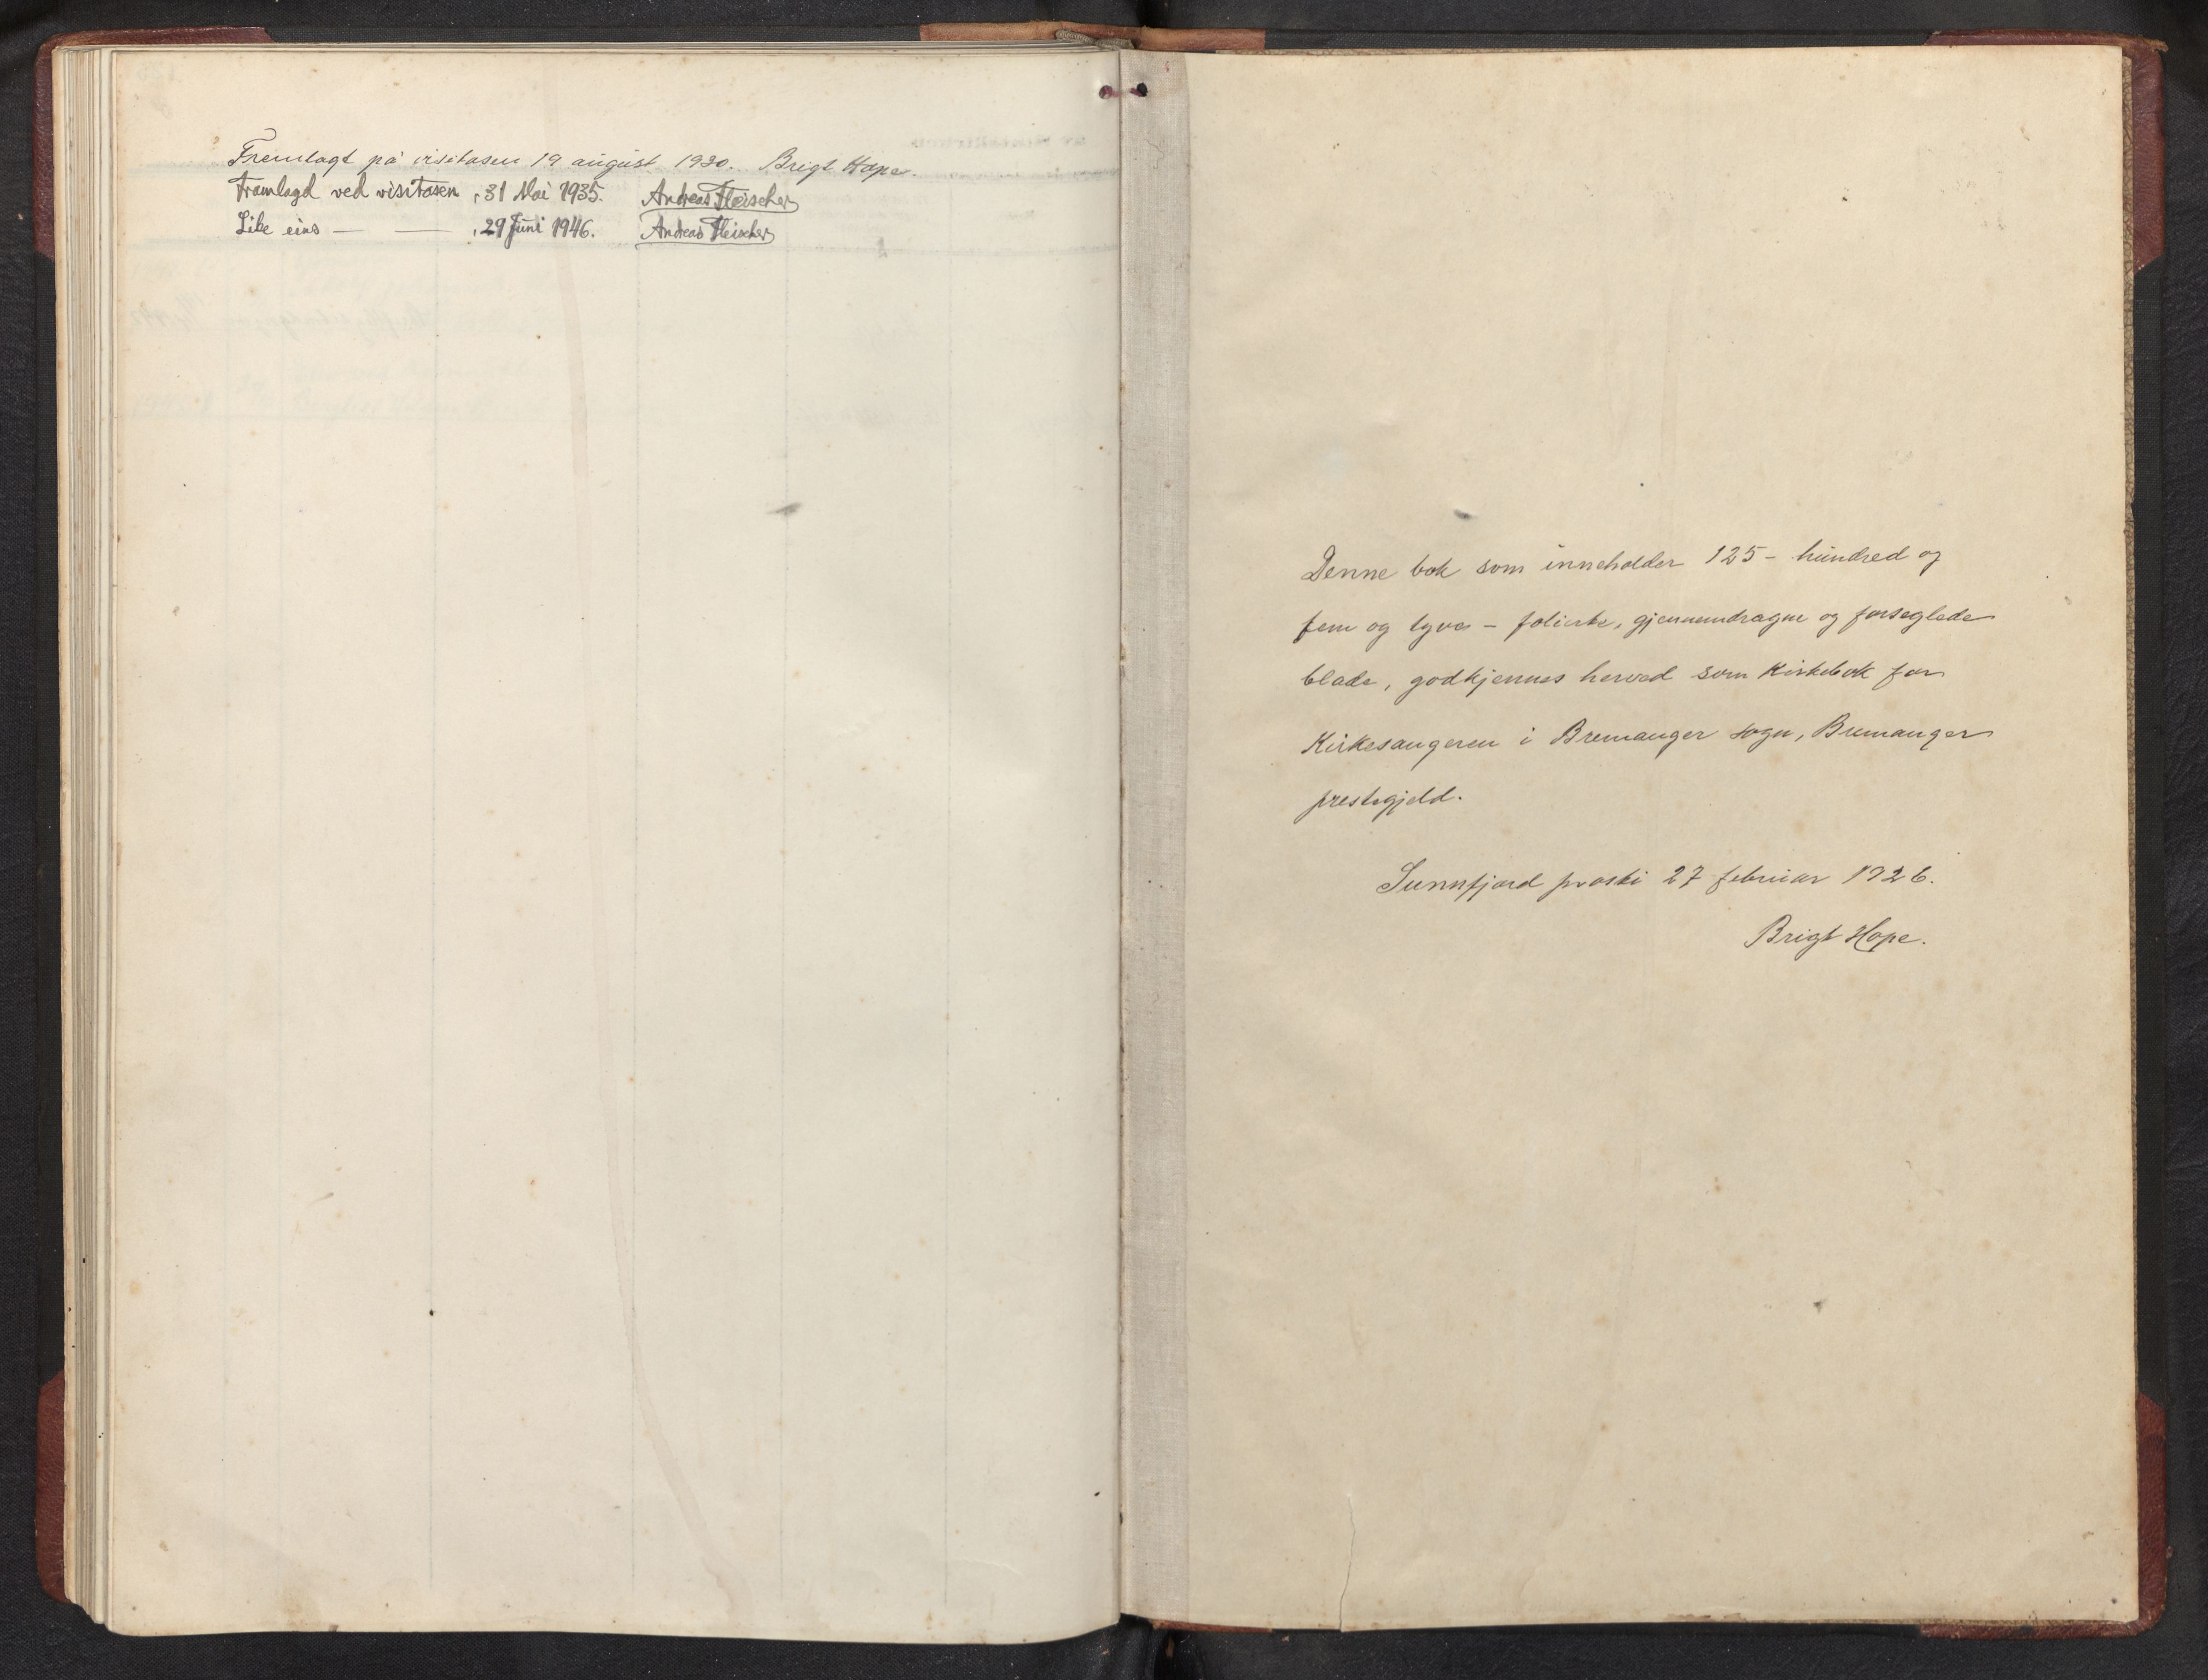 Fremlagt på visitasen 19 august 1930. Brigt Hope.
Framlagd ved visitasen, 31 Mai 1935. Andreas Fleischer
Like eins — — , 29 Juni 1946. Andreas Fleischer
Denne bok som inneholder 125 - hundred og
fem og tyve - folierte, gjennemdragne og forseglede
blade, godkjennes herved som Kirkebok for
Kirkesangeren i Bremanger sogn, Bremanger
prestegjeld.
Sunnfjord prosti 27 februar 1926.
Brigt Hope.